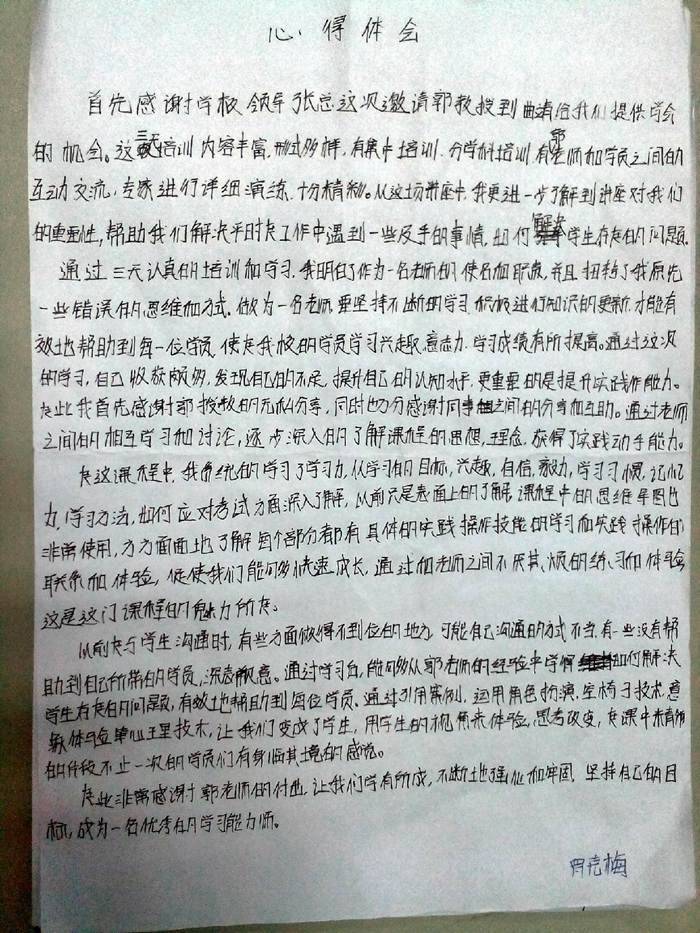 心得体会
首先感谢学校领导张总这次邀请郭教授到曲靖给我们提供学会
的机会。这三天培训内容丰富,形式多样,有集中培训.分学科培训.有郭老师和学员之间的
互动交流,专家进行详细演练.十分精彩。从这场讲座中.我更进一步了解到讲座对我们
的重要性,帮助我们解决平时在工作中遇到一些反手的事情,如何解决学生存在的问题.
通过三天认真的培训和学习.我明白了作为一名老师的使名和职责,并且扭转了我原先
一些错误的思维和方式.做为一名老师.要坚持不断的学习.积极进行知识的更新.才能有
效地帮助到每一位学员.使在我校的学员学习兴趣.意志力.学习成绩有所提高。通过这次
的学习,自己收获颇多,发现自己的不足,提升自己的认知水平.更重要的是提升实践作能力。
在此我首先感谢郭授教的无私分享,同时也万分感谢同事之间的分享和互助。通过老师
之间的相互学习和讨论,逐步深入的了解课程的思想,理念.获得了实践动手能力。
在这课程中.我系统的学习了学习力,从学习的目标,兴趣,自信,毅力,学习习惯,记忆
力,学习方法,如何应对考试方面深入了解,从前只是表面上的了解,课程中的思维导图也
非常使用,方方面面地了解每个部分都有具体的实践操作技能的学习和实践对操作的
联系和体验,促使我们能够快速成长,通过和老师之间不厌其烦的练习和体验,
这是这门课程的魅力所在。
从前在与学生沟通时,有些方面做得不到位的地方,可能自己沟通的方式不当.有一些没有帮
助到自己所带的学员,深表歉意。通过学习后,能够从郭老师的经验中学会如何解决
学生存在的问题,有效地帮助到每位学员.通过引用案例,运用角色扮演,空椅子技术,意
象体验等心理技术,让我们变成了学生,用学生的视角来体验,思考改变,在课中未有
的体验不止一次的学员们有身临其境的感觉。
在此非常感谢郭老师的付出,让我们学有所成,不断地强化和牢固.坚持自己的目
标,成为一名优秀的学习能力师。
梅